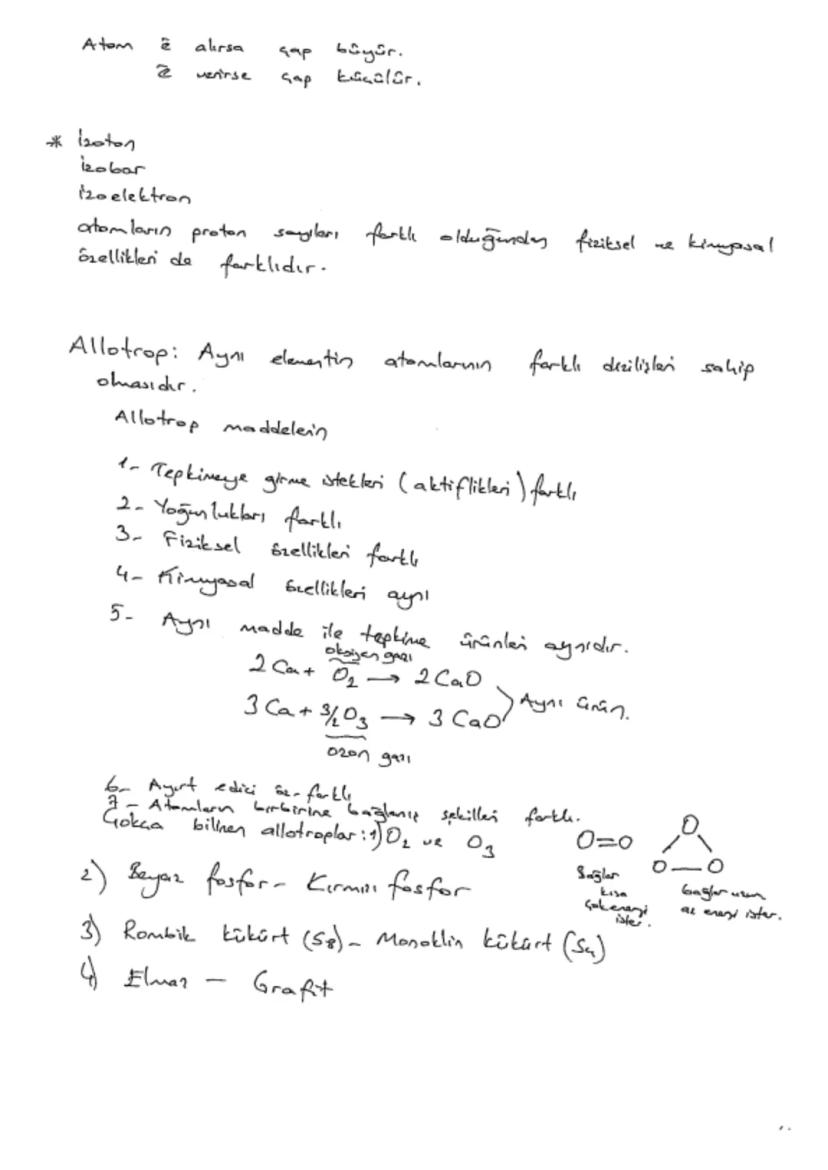 Atom ē alırsa çap büyür.
ē verirse çap küçülür.
* İzoton
İzobar
İzoelektron
atomların proton sayıları farklı olduğundan fiziksel ve kimyasal
özellikleri de farklıdır.
Allotrop: Aynı elementin atomlarının farklı dizilişleri sahip
olmasıdır.
Allotrop maddelerin
1- Tepkimeye girme istekleri (aktiflikleri) farklı
2- Yoğunlukları farklı
3- Fiziksel özellikleri farklı
4- Kimyasal özellikleri aynı
5- Aynı madde ile tepkime ürünleri aynıdır.
oksijen gazı
2 Ca + O₂ → 2 CaO
3 Ca + 3/2 O₃ → 3 CaO
Aynı ürün.
ozon gazı
6- Ayırt edici öz. farklı
7- Atomların birbirine bağlanış şekilleri farklı.
Çokça bilinen allotroplar: 1) O₂ ve O₃
O=O
O
O—O
Bağlar
kısa
çok enerji
ister.
bağlar uzun
az enerji ister.
2) Beyaz fosfor - Kırmızı fosfor
3) Rombik kükürt (S₈) - Monoklin kükürt (S₄)
4) Elmas - Grafit